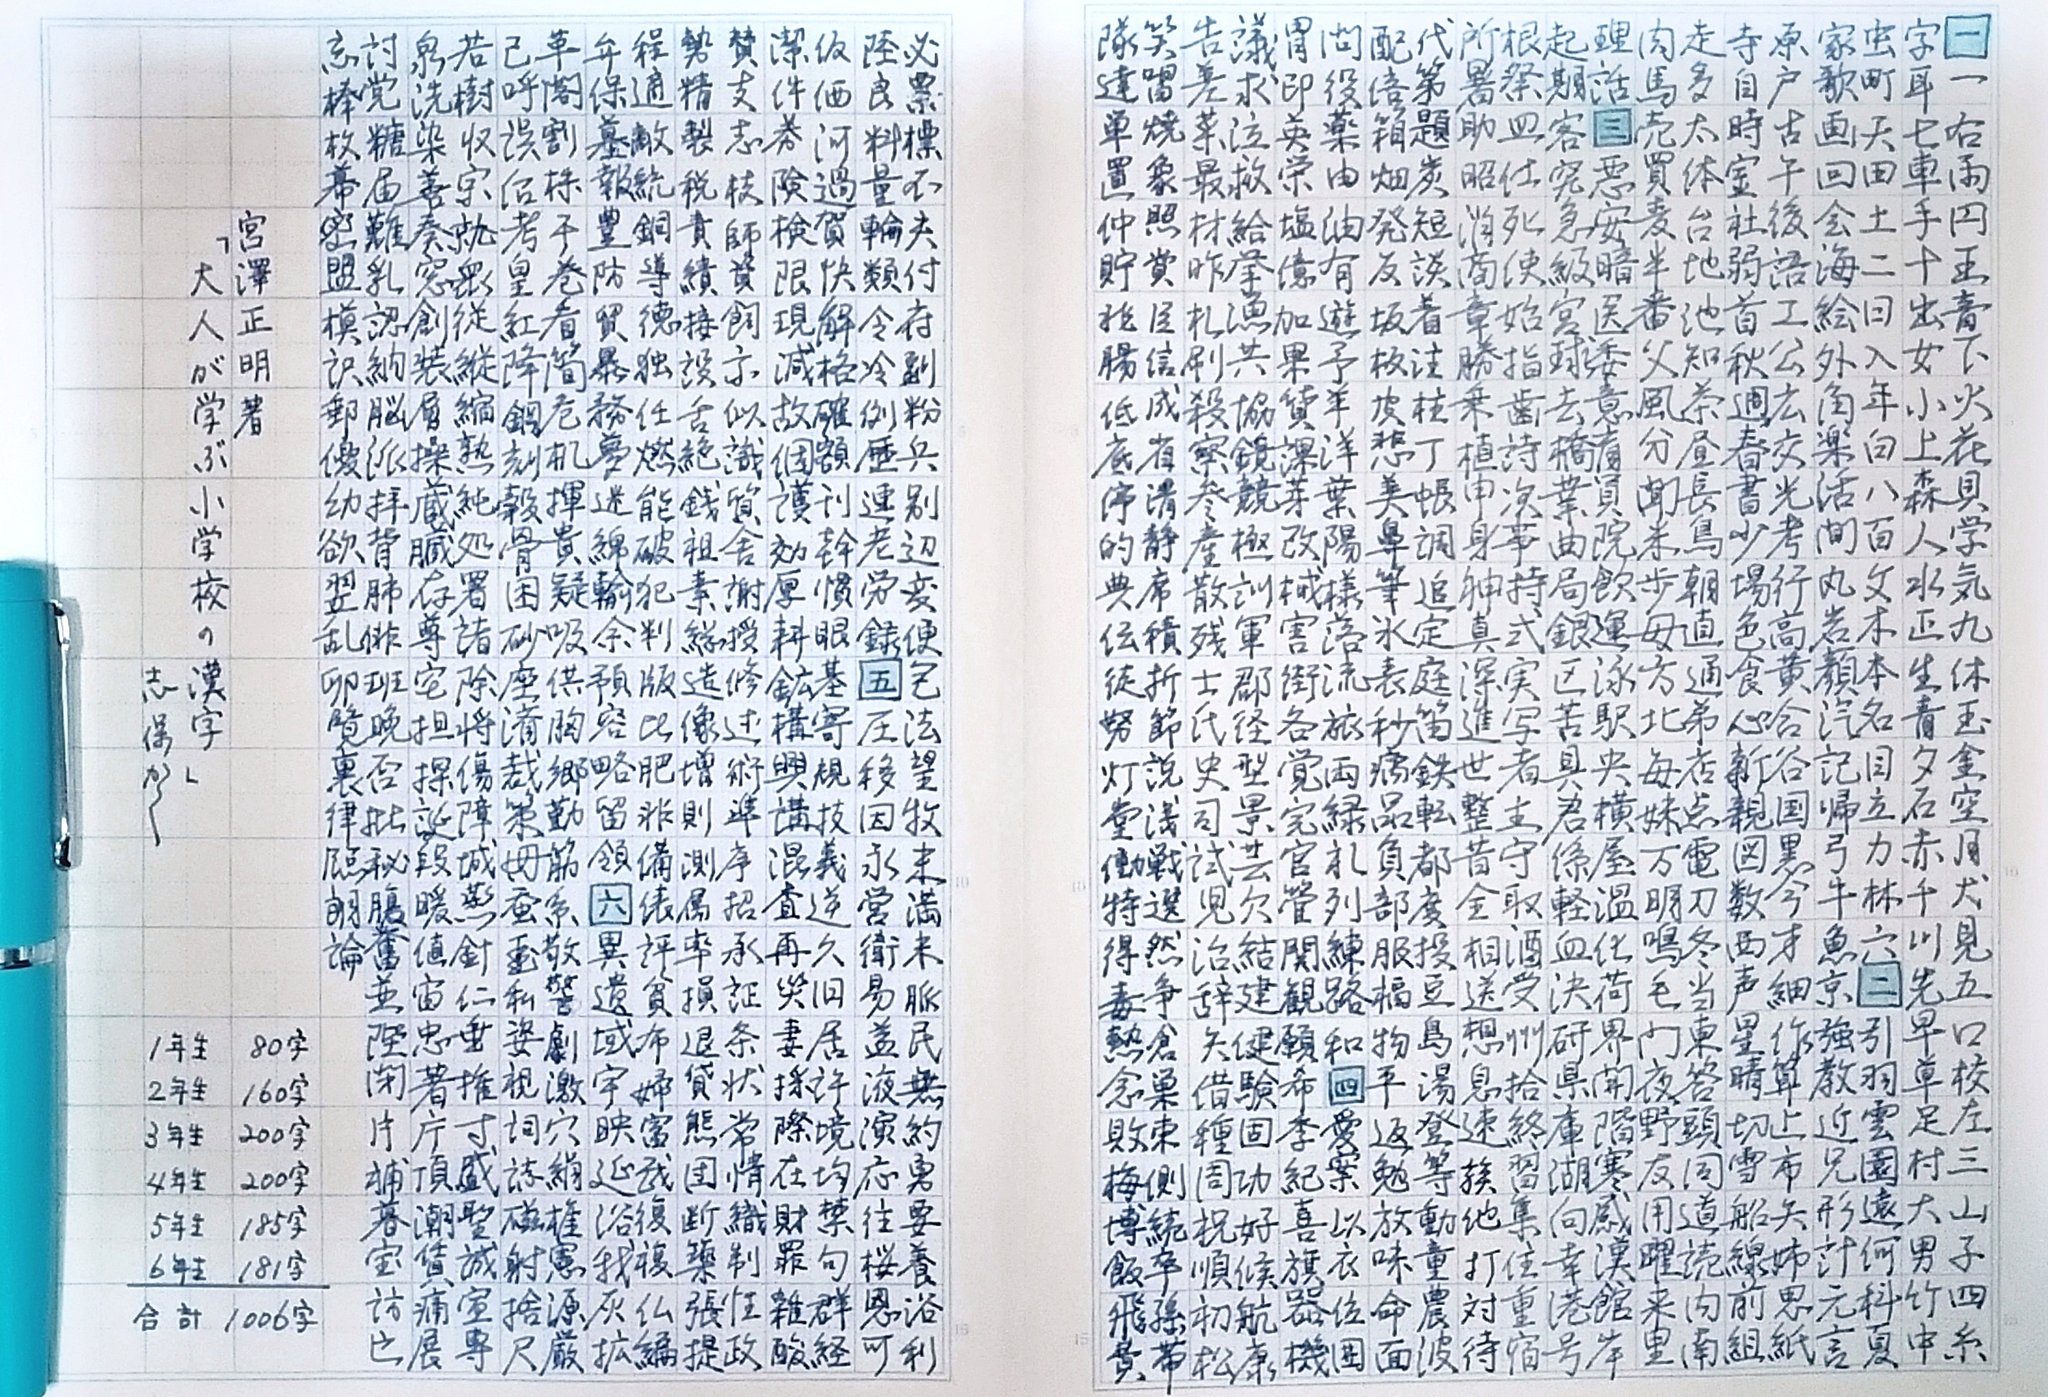 一一右雨円王音下火花貝学気九休玉金空月犬見五口校左三山子四糸
字耳七車手十出女小上森人水正生青夕石赤千川先早草足村大男竹中
虫町天田土二日入年白八百文木本名目立力林六二引羽雲園遠何科夏
家歌画回会海絵外角楽活間丸岩顔汽記帰弓牛魚京強教近兄形計元言
原戸古午後語工公広交光考行高黄合谷国黒今才細作算止市矢姉思紙
寺自時室社弱首秋週春書少場色食心新親図数西声星晴切雪船線前組
走多太体台地池知茶昼長鳥朝直通弟店点電刀冬当東答頭同道読内南
肉馬売買麦半番父風分聞米歩母方北毎妹万明鳴毛門夜野友用曜来里
理話三悪安暗医委意育員院飲運泳駅央横屋温化荷界開階寒感漢館岸
起期客究急級宮球去橋業曲局銀区苦具君係軽血決研県庫湖向幸港号
根祭皿仕死使始指歯詩次事持式実写者主守取酒受州拾終習集住重宿
所暑助昭消商章勝乗植申身神真深進世整昔全相送想息速族他打対待
代第題炭短談着注柱丁帳調追定庭笛鉄転都度投豆島湯登等動童農波
配倍箱畑発反坂板皮悲美鼻筆氷表秒病品負部服福物平返勉放味命面
問役薬由油有遊予羊洋葉陽様落流旅両緑礼列練路和四愛案以衣位囲
胃印英栄塩億加果貨課芽改械害街各覚完官管関観願希季紀喜旗器機
議求泣救給挙漁共協鏡競極訓軍郡径型景芸欠結建健験固功好候航康
告差菜最材昨札刷殺察参産散残士氏史司試児治辞失借種周祝順初松
笑唱焼象照賞臣信成省清静席積折節説浅戦選然争倉巣束側続卒孫帯
隊達単置仲貯兆腸低底停的典伝徒努灯堂働特得毒熱念敗梅博飯飛費
必票標不夫付府副粉兵別辺変便包法望牧末満未脈民無約勇要養浴利
陸良料量輪類令冷例歴連老労録五圧移因永営衛易益液演応往桜恩可
仮価河過賀快解格確額刊幹慣眼基寄規技義逆久旧居許境均禁句群経
潔件券険検限現減故個護効厚耕鉱構興講混査再災妻採際在財罪雑酸
賛支志枝師資飼示似識質舎謝授修述術準序招承証条状常情織制性政
勢精製税責績接設舌絶銭祖素総造像増則測属率損退貸態団断築張提
程適敵統銅導徳独任燃能破犯判版比肥非備俵評貧布婦富武復複仏編
弁保墓報豊防貿暴務夢迷綿輸余預容略留領六異遺域宇映延沿我灰拡
革閣割株干巻看簡危机揮貴疑吸供胸郷勤筋系敬警劇激穴絹権憲源厳
己呼誤后孝皇紅降鋼刻穀骨困砂座済裁策冊蚕至私姿視詞誌磁射捨尺
若樹収宗就衆従縦縮熟純処署諸除将傷障城蒸針仁垂推寸盛聖誠宣専
泉洗染善奏窓創装層操蔵臓存尊宅担探誕段暖値宙忠著庁頂潮賃痛展
討党糖届難乳認納脳派拝背肺俳班晩否批秘腹奮並陛閉片補暮宝訪亡
忘棒枚幕密盟模訳郵優幼欲翌乱卵覧裏律臨朗論
宮澤正明著
「大人が学ぶ小学校の漢字」
志保から
1年生 80字
2年生 160字
3年生 200字
4年生 200字
5年生 185字
6年生 181字
合計 1006字